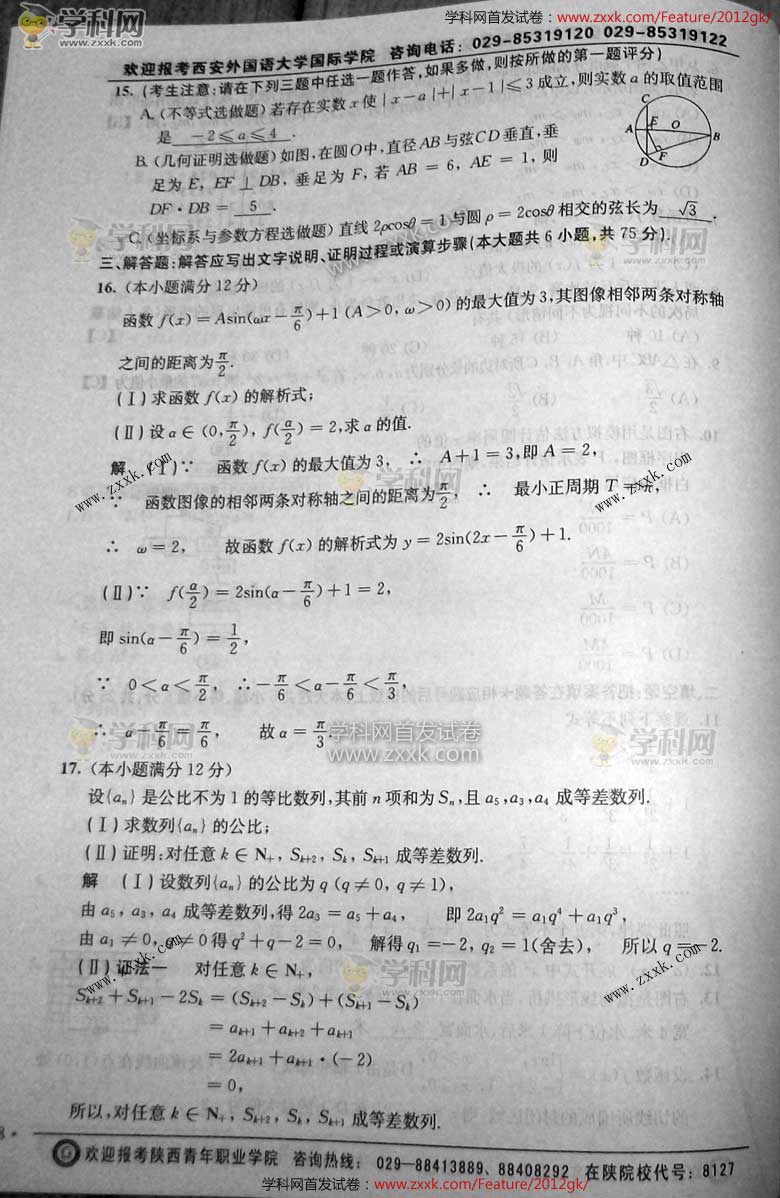 学科网首发试卷：www.zxxk.com/Feature/2012gk/
学科网
www.zxxk.com
欢迎报考西安外国语大学国际学院 咨询电话：029-85319120 029-85319122
15. (考生注意:请在下列三题中任选一题作答,如果多做,则按所做的第一题评分)
A.(不等式选做题)若存在实数 x 使 |x-a|+|x-1|≤3 成立,则实数 a 的取值范围
是 -2≤a≤4 .
B.(几何证明选做题)如图,在圆O中,直径AB与弦CD垂直,垂
足为 E, EF⊥DB, 垂足为 F, 若 AB = 6, AE = 1, 则
DF·DB = 5 .
C
A
E
O
B
D
F
C.(坐标系与参数方程选做题) 直线 2ρcosθ = 1 与圆 ρ = 2cosθ 相交的弦长为 √3 .
三、解答题:解答应写出文字说明、证明过程或演算步骤(本大题共 6 小题,共 75 分).
学科网首发试卷
www.zxxk.com
16. (本小题满分 12 分)
函数 f(x) = Asin(ωx - π/6)+1 (A>0, ω>0) 的最大值为 3,其图像相邻两条对称轴
之间的距离为 π/2.
(Ⅰ) 求函数 f(x) 的解析式;
(Ⅱ) 设 α∈(0, π/2), f(α/2) = 2,求 α 的值.
解 (Ⅰ)∵ 函数 f(x) 的最大值为 3, ∴ A+1 = 3,即 A = 2,
∵ 函数图像的相邻两条对称轴之间的距离为 π/2, ∴ 最小正周期 T = π,
∴ ω = 2, 故函数 f(x) 的解析式为 y = 2sin(2x - π/6)+1.
(Ⅱ)∵ f(α/2) = 2sin(α - π/6)+1 = 2,
即 sin(α - π/6) = 1/2,
∵ 0<α<π/2, ∴ -π/6<α-π/6<π/3,
∴ α - π/6 = π/6, 故 α = π/3.
学科网首发试卷
www.zxxk.com
17. (本小题满分 12 分)
设{aₙ}是公比不为 1 的等比数列,其前 n 项和为 Sₙ,且 a₅,a₃,a₄ 成等差数列.
(Ⅰ) 求数列{aₙ}的公比;
(Ⅱ) 证明:对任意 k∈N₊, Sₖ₊₂, Sₖ, Sₖ₊₁ 成等差数列.
解 (Ⅰ) 设数列{aₙ}的公比为 q (q≠0, q≠1),
由 a₅, a₃, a₄ 成等差数列,得 2a₃ = a₅+a₄, 即 2a₁q² = a₁q⁴+a₁q³,
由 a₁≠0, q≠0 得 q²+q-2 = 0, 解得 q₁=-2, q₂ = 1(舍去), 所以 q=-2.
(Ⅱ) 证法一 对任意 k∈N₊,
Sₖ₊₂+Sₖ₊₁-2Sₖ = (Sₖ₊₂-Sₖ)+(Sₖ₊₁-Sₖ)
= aₖ₊₁+aₖ₊₂+aₖ₊₁
= 2aₖ₊₁+aₖ₊₁·(-2)
= 0,
所以,对任意 k∈N₊, Sₖ₊₂, Sₖ, Sₖ₊₁ 成等差数列.
欢迎报考陕西青年职业学院 咨询热线: 029—88413889、88408292 在陕院校代号: 8127
学科网首发试卷：www.zxxk.com/Feature/2012gk/